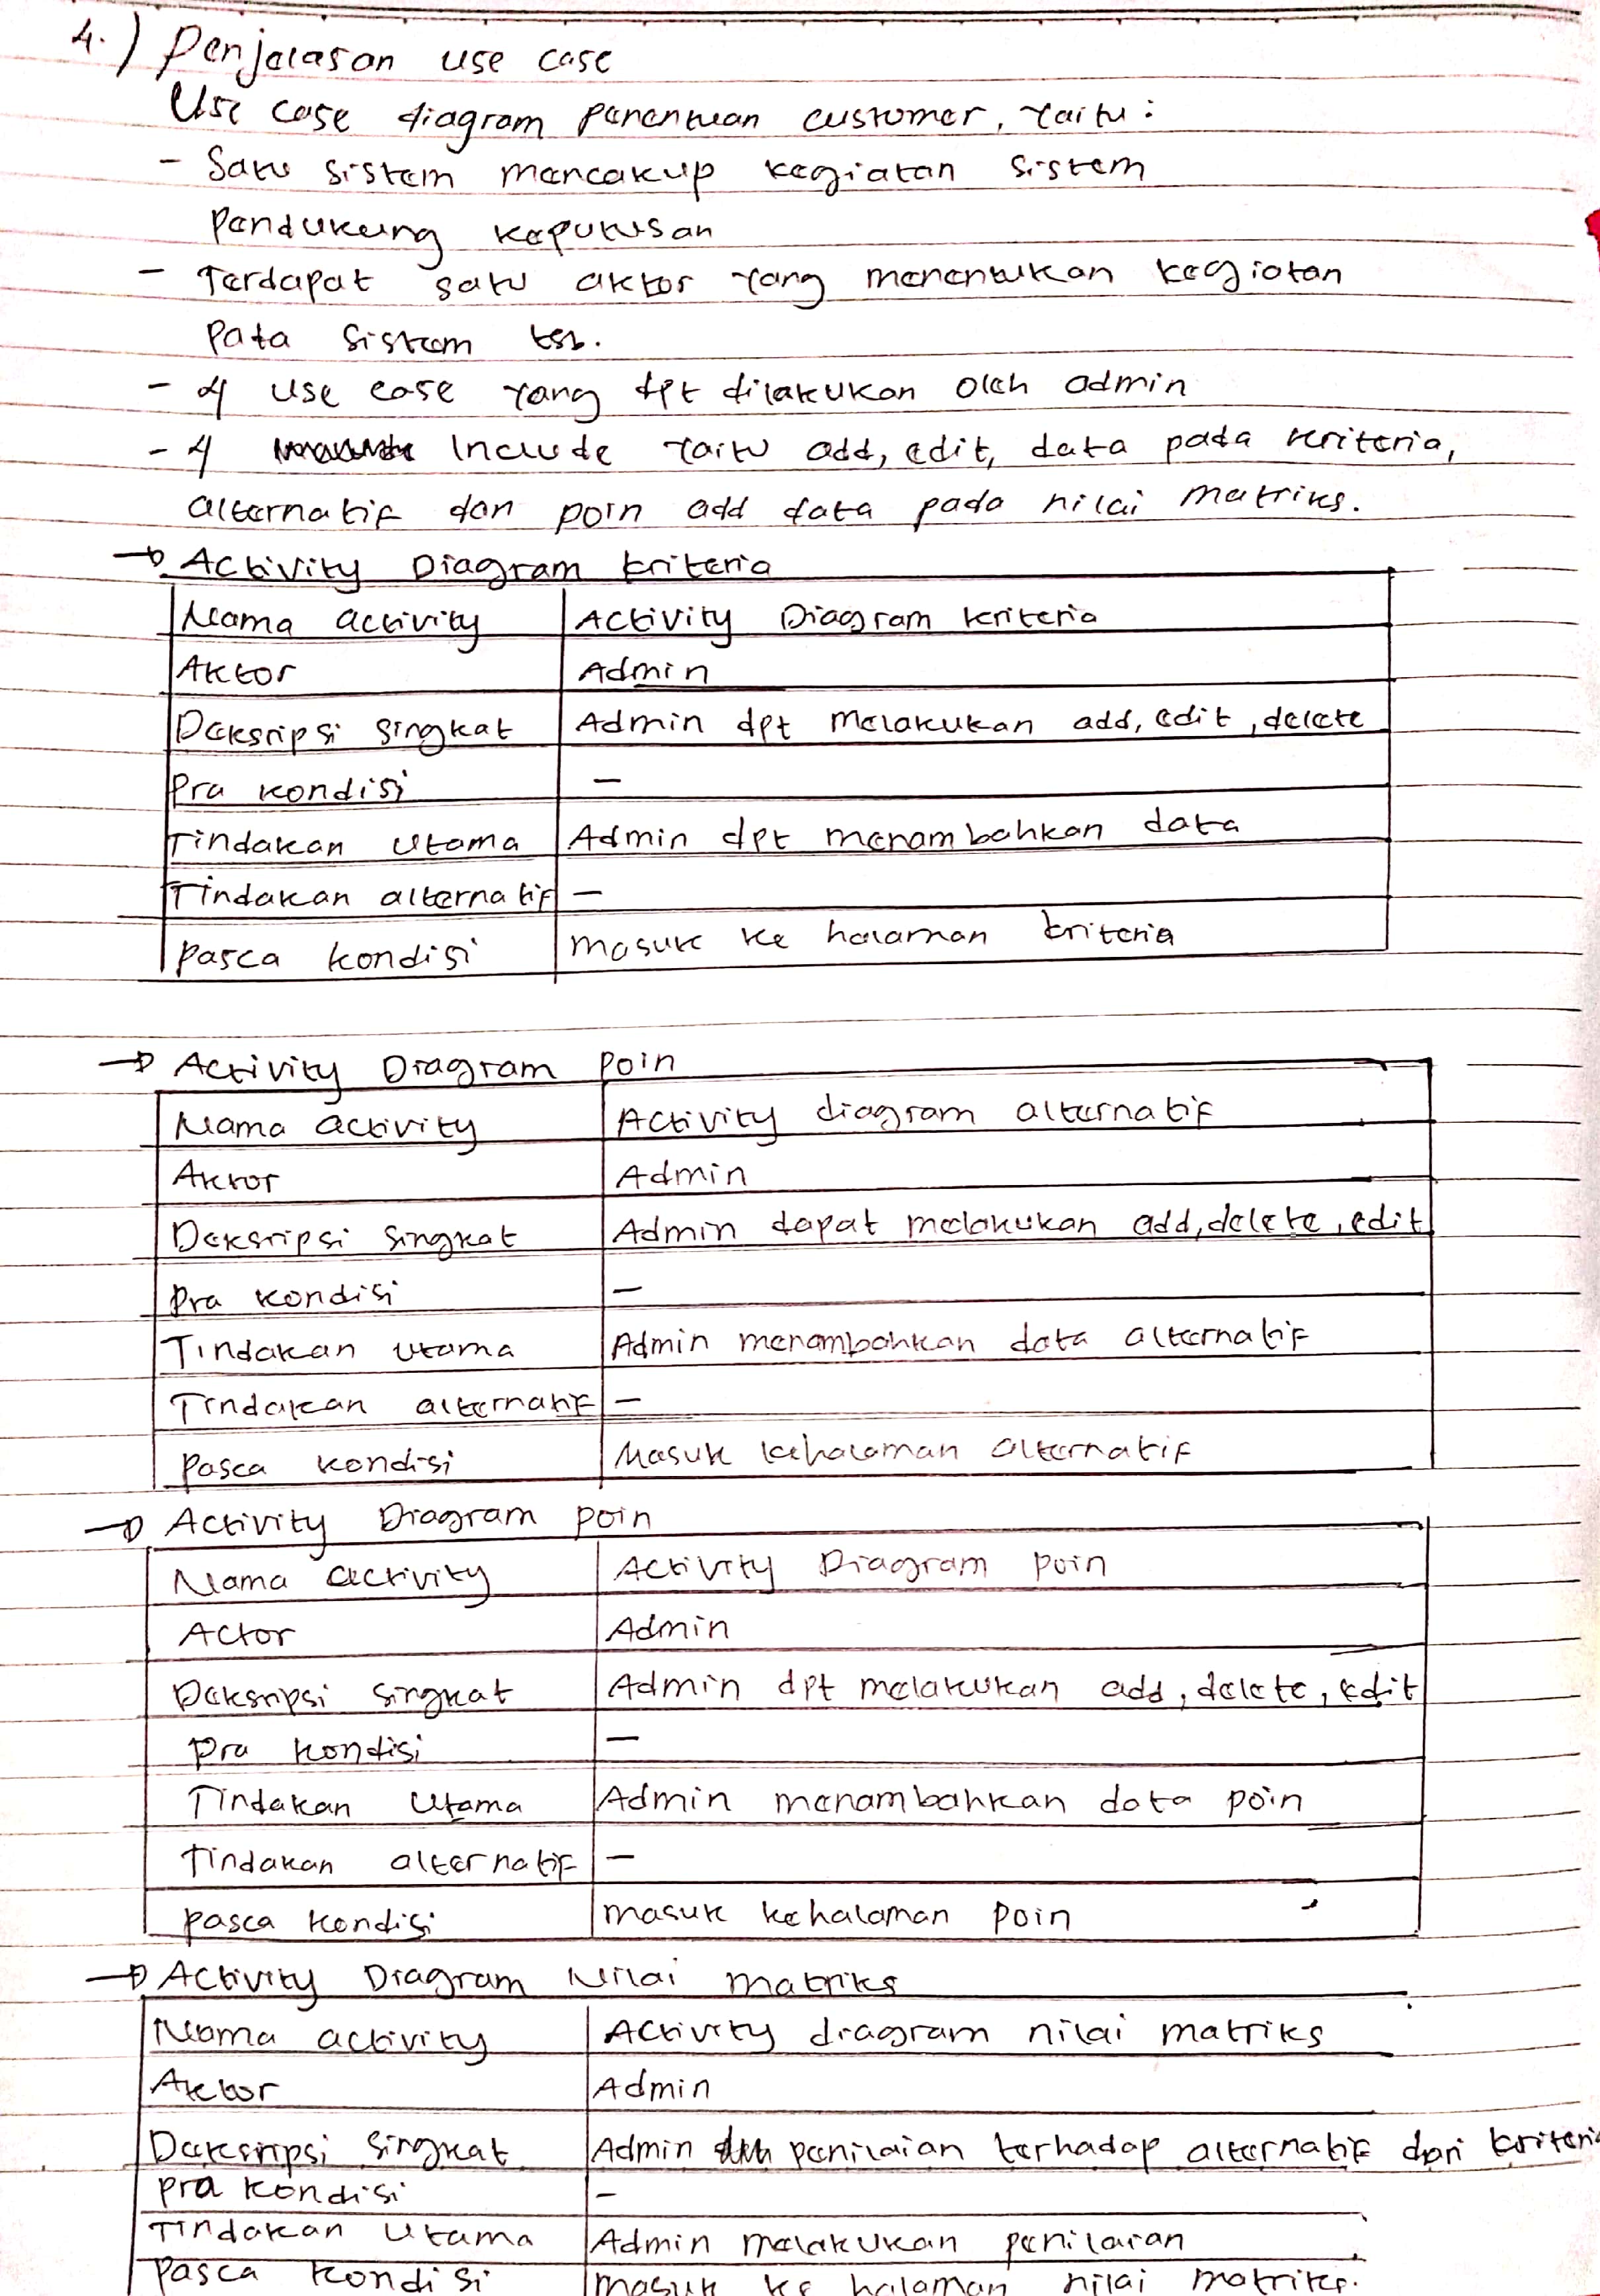 4.) Penjelasan use case
Use case diagram penentuan customer, yaitu :
- Satu sistem mencakup kegiatan sistem
pendukung keputusan
- Terdapat satu aktor yang menentukan kegiatan
pada sistem tsb.
- 4 use case yang dpt dilakukan oleh admin
- 4 Include yaitu add, edit, data pada kriteria,
alternatif dan poin add data pada nilai matriks.
→ Activity Diagram kriteria
Nama activity Activity Diagram kriteria
Aktor Admin
Deksripsi singkat Admin dpt melakukan add, edit, delete
Pra kondisi -
Tindakan utama Admin dpt menambahkan data
Tindakan alternatif -
pasca kondisi masuk ke halaman kriteria
→ Activity Diagram poin
Nama activity Activity diagram alternatif
Aktor Admin
Deksripsi singkat Admin dapat melakukan add, delete, edit
Pra kondisi -
Tindakan utama Admin menambahkan data alternatif
Tindakan alternatif -
pasca kondisi Masuk kehalaman alternatif
→ Activity Diagram poin
Nama activity Activity Diagram poin
Actor Admin
Deksripsi singkat Admin dpt melakukan add, delete, edit
pra kondisi -
Tindakan utama Admin menambahkan data poin
Tindakan alternatif -
pasca kondisi masuk kehalaman poin
→ Activity Diagram Nilai matriks
Nama activity Activity diagram nilai matriks
Aktor Admin
Deksripsi singkat Admin penilaian terhadap alternatif dari kriteri
pra kondisi -
Tindakan utama Admin melakukan penilaian
pasca kondisi masuk ke halaman nilai matriks.